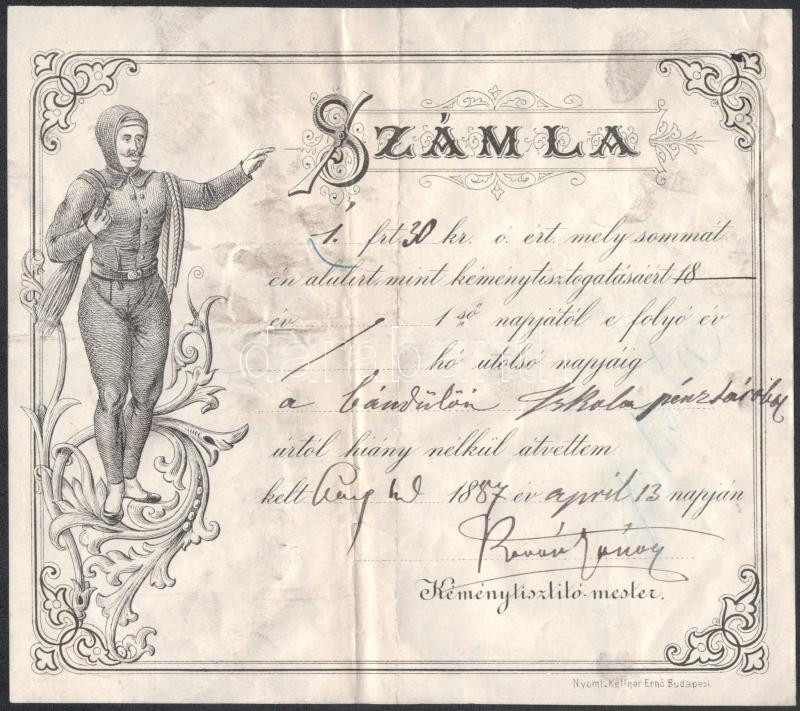 SZÁMLA
1. frt. 30 kr. ó. ért. mely sommát
én alulirt, mint kéménytisztogatásáért 18
év 1 ső napjától e folyó év
hó utolsó napjáig
a Iskola
úrtól hiány nélkül átvettem.
kelt 1887 év april 13 napján
János
Kéménytisztitó-mester.
Nyomt. Kellner Ernő Budapest.
darabanth